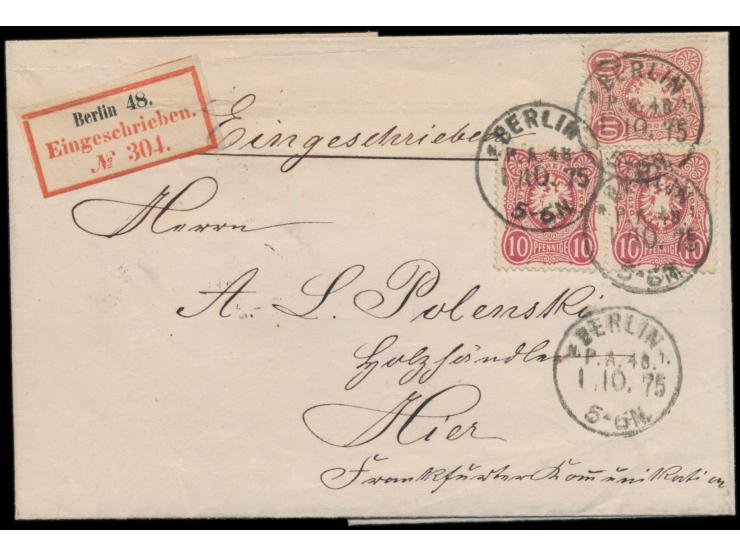 Berlin 48.
Eingeschrieben.
№ 304.
Eingeschrieben
Herrn
A. L. Polenski
Holzhändler
Hier
Frankfurter Kommunikation
10 PFENNIGE 10
10 PFENNIGE 10
BERLIN
P.A. 48.
1.10.75
BERLIN
P.A. 48.
1.10.75
5-6N.
BERLIN
P.A. 48
1.10.75
5-6N.
BERLIN
P.A. 48.
1.10.75
5-6N.